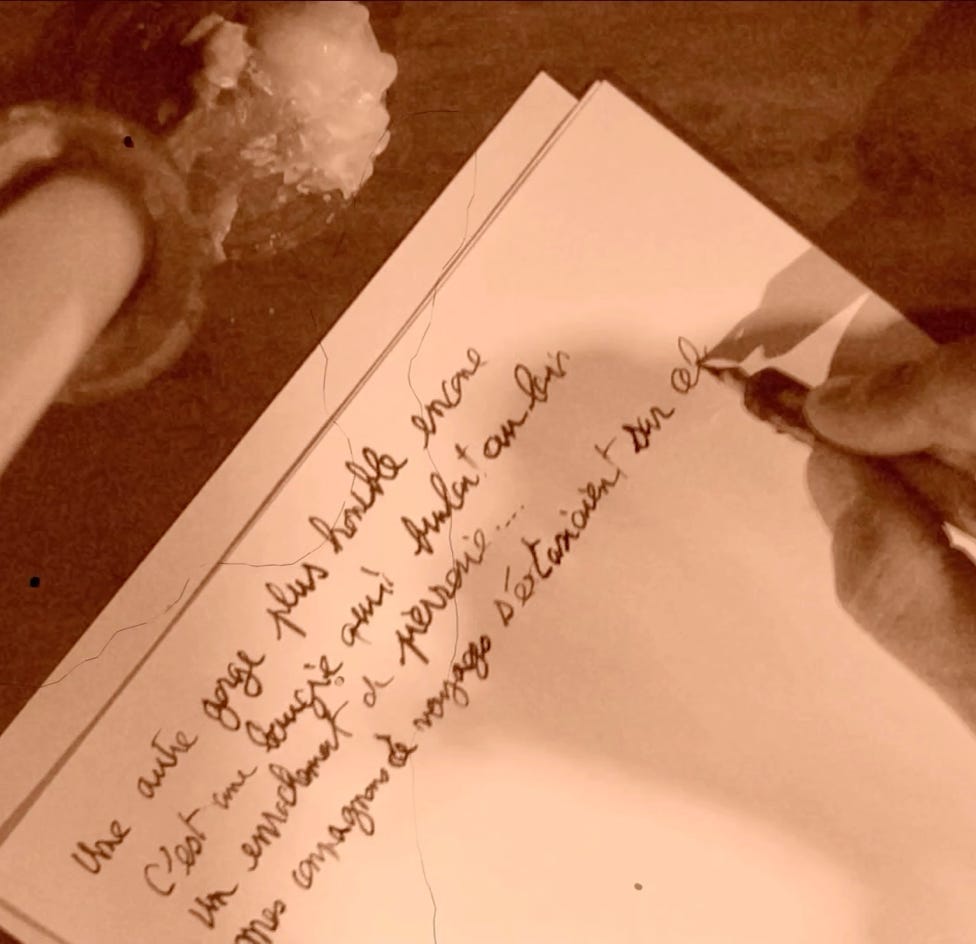 Une autre gorge plus horrible encore
C'est une bougie qui brulait au loin
Un enrochement de pierrerie....
mes compagnons de voyages s'extasiaient sur cet